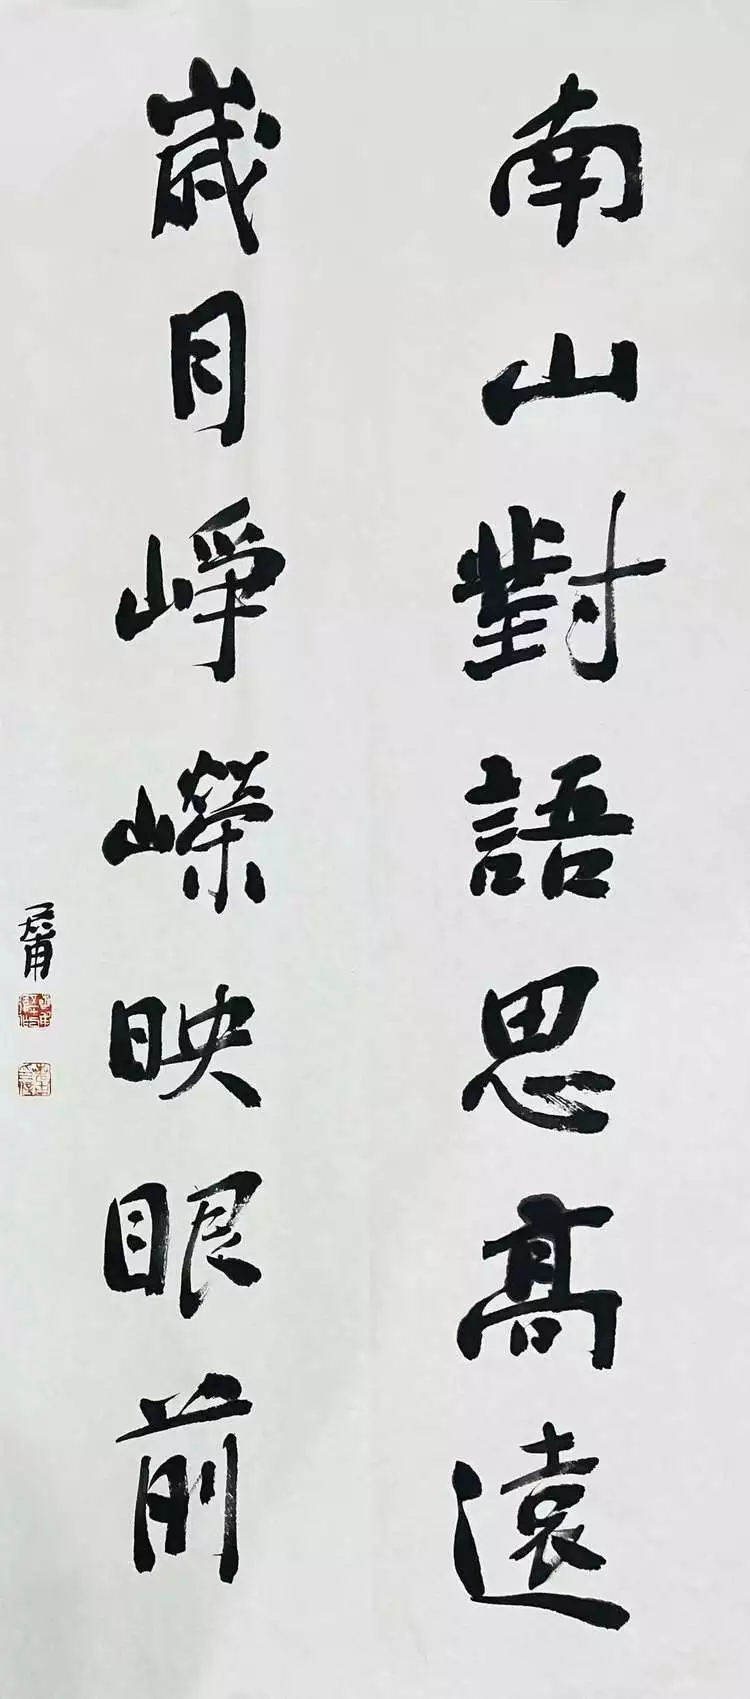 南山對語思高遠
歲月崢嶸映眼前